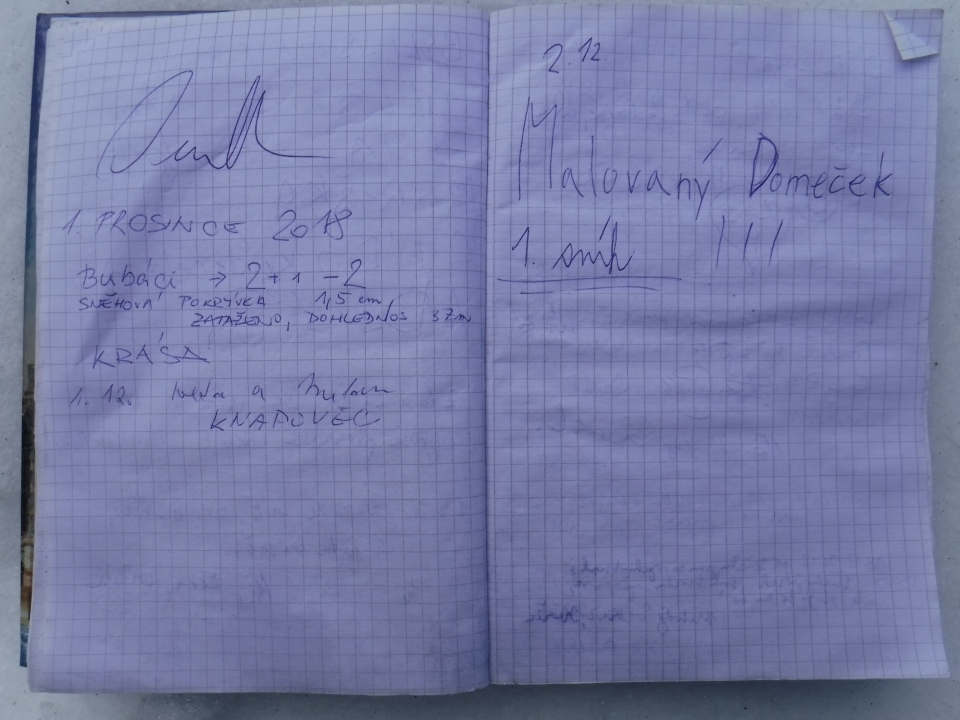 1. PROSINCE 2018
Bubáci → 2 + 1 - 2
SNĚHOVÁ POKRÝVKA 1,5 cm
ZATAŽENO, DOHLEDNOS 37m
KRÁSA
1. 12. a
KNAPOVEC
2.12.
Malovaný Domeček
1. sníh !!!